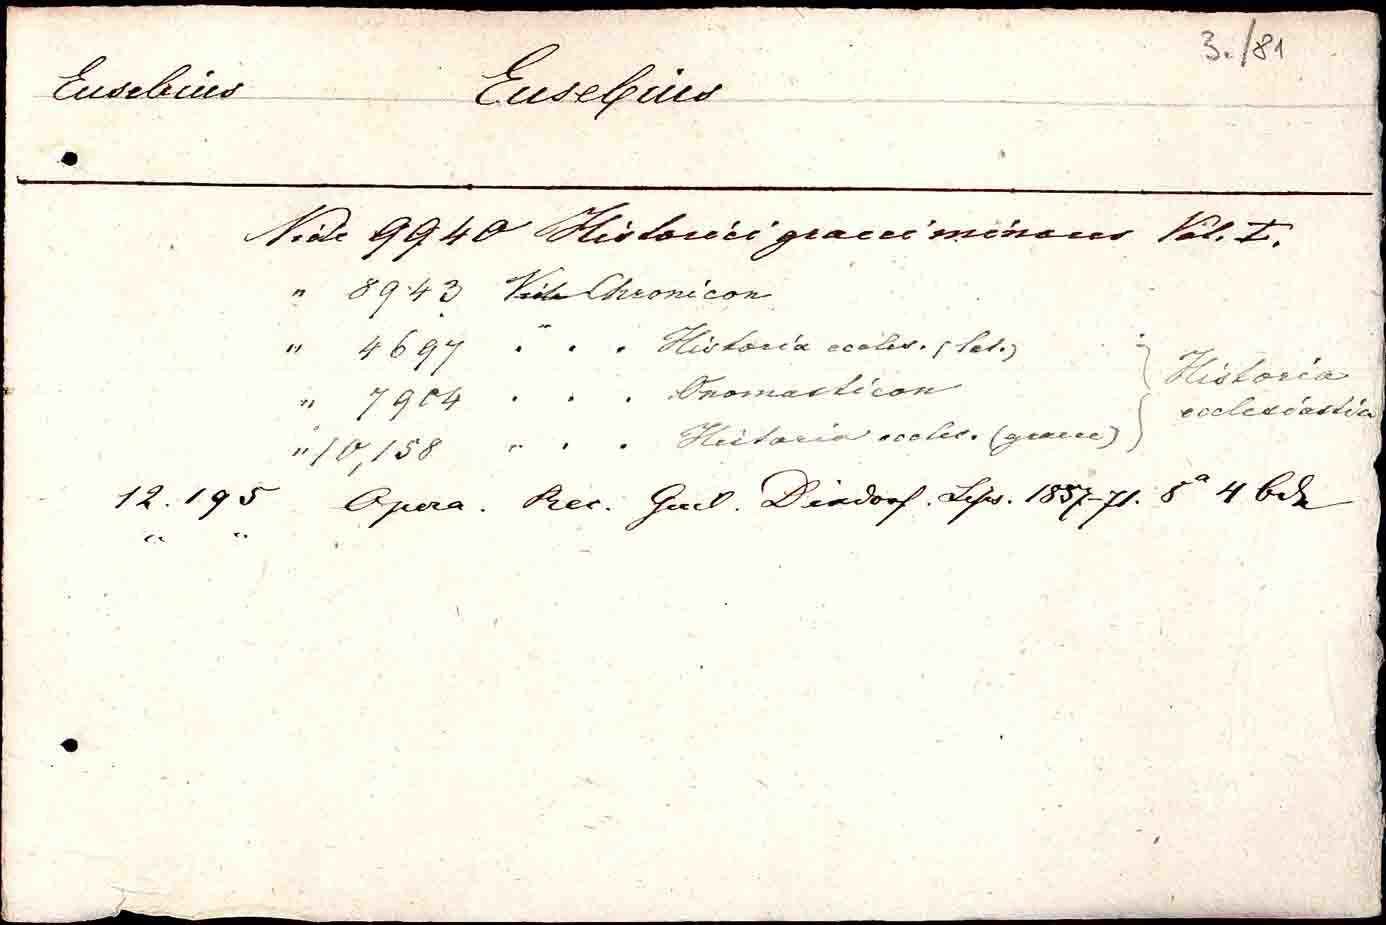 3./81
Eusebius Eusebius
Vide 9940 Historici graeci minores Vol. I.
" 8943 Vide Chronicon
" 4697 " . . Historia eccles. (lat.)
" 7904 . . . Onomasticon
" 10,158 " . . Historia eccles. (graece)
} Historia
ecclesiastica
12.195 Opera. Rec. Guil. Dindorf. Lips. 1857-71. 8° 4 bde
" "